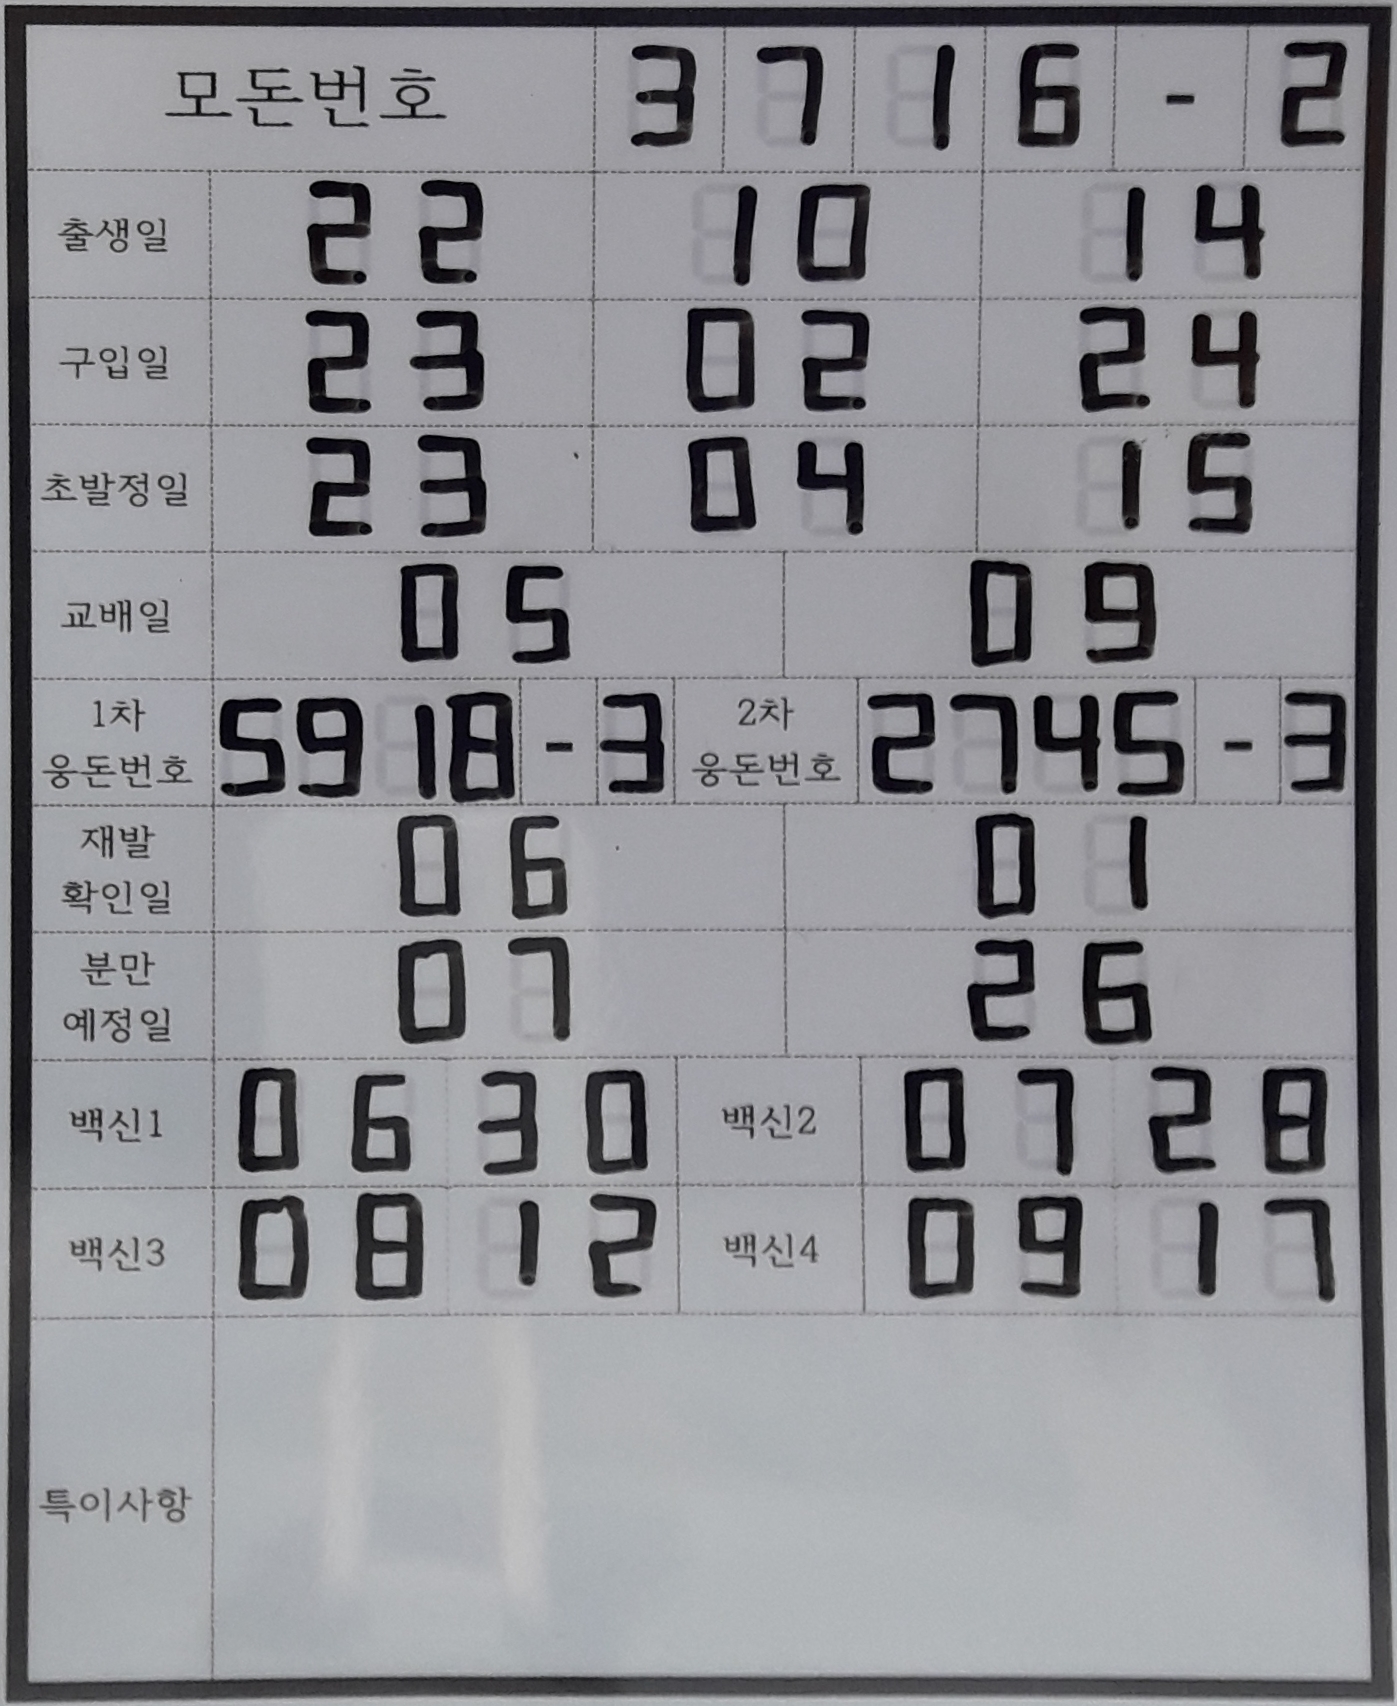 모돈번호 3716-2
출생일 22 10 14
구입일 23 02 24
초발정일 23 04 15
교배일 05 09
1차 웅돈번호 5918-3 2차 웅돈번호 2745-3
재발 확인일 06 01
분만 예정일 07 26
백신1 06 30 백신2 07 28
백신3 08 12 백신4 09 17
특이사항